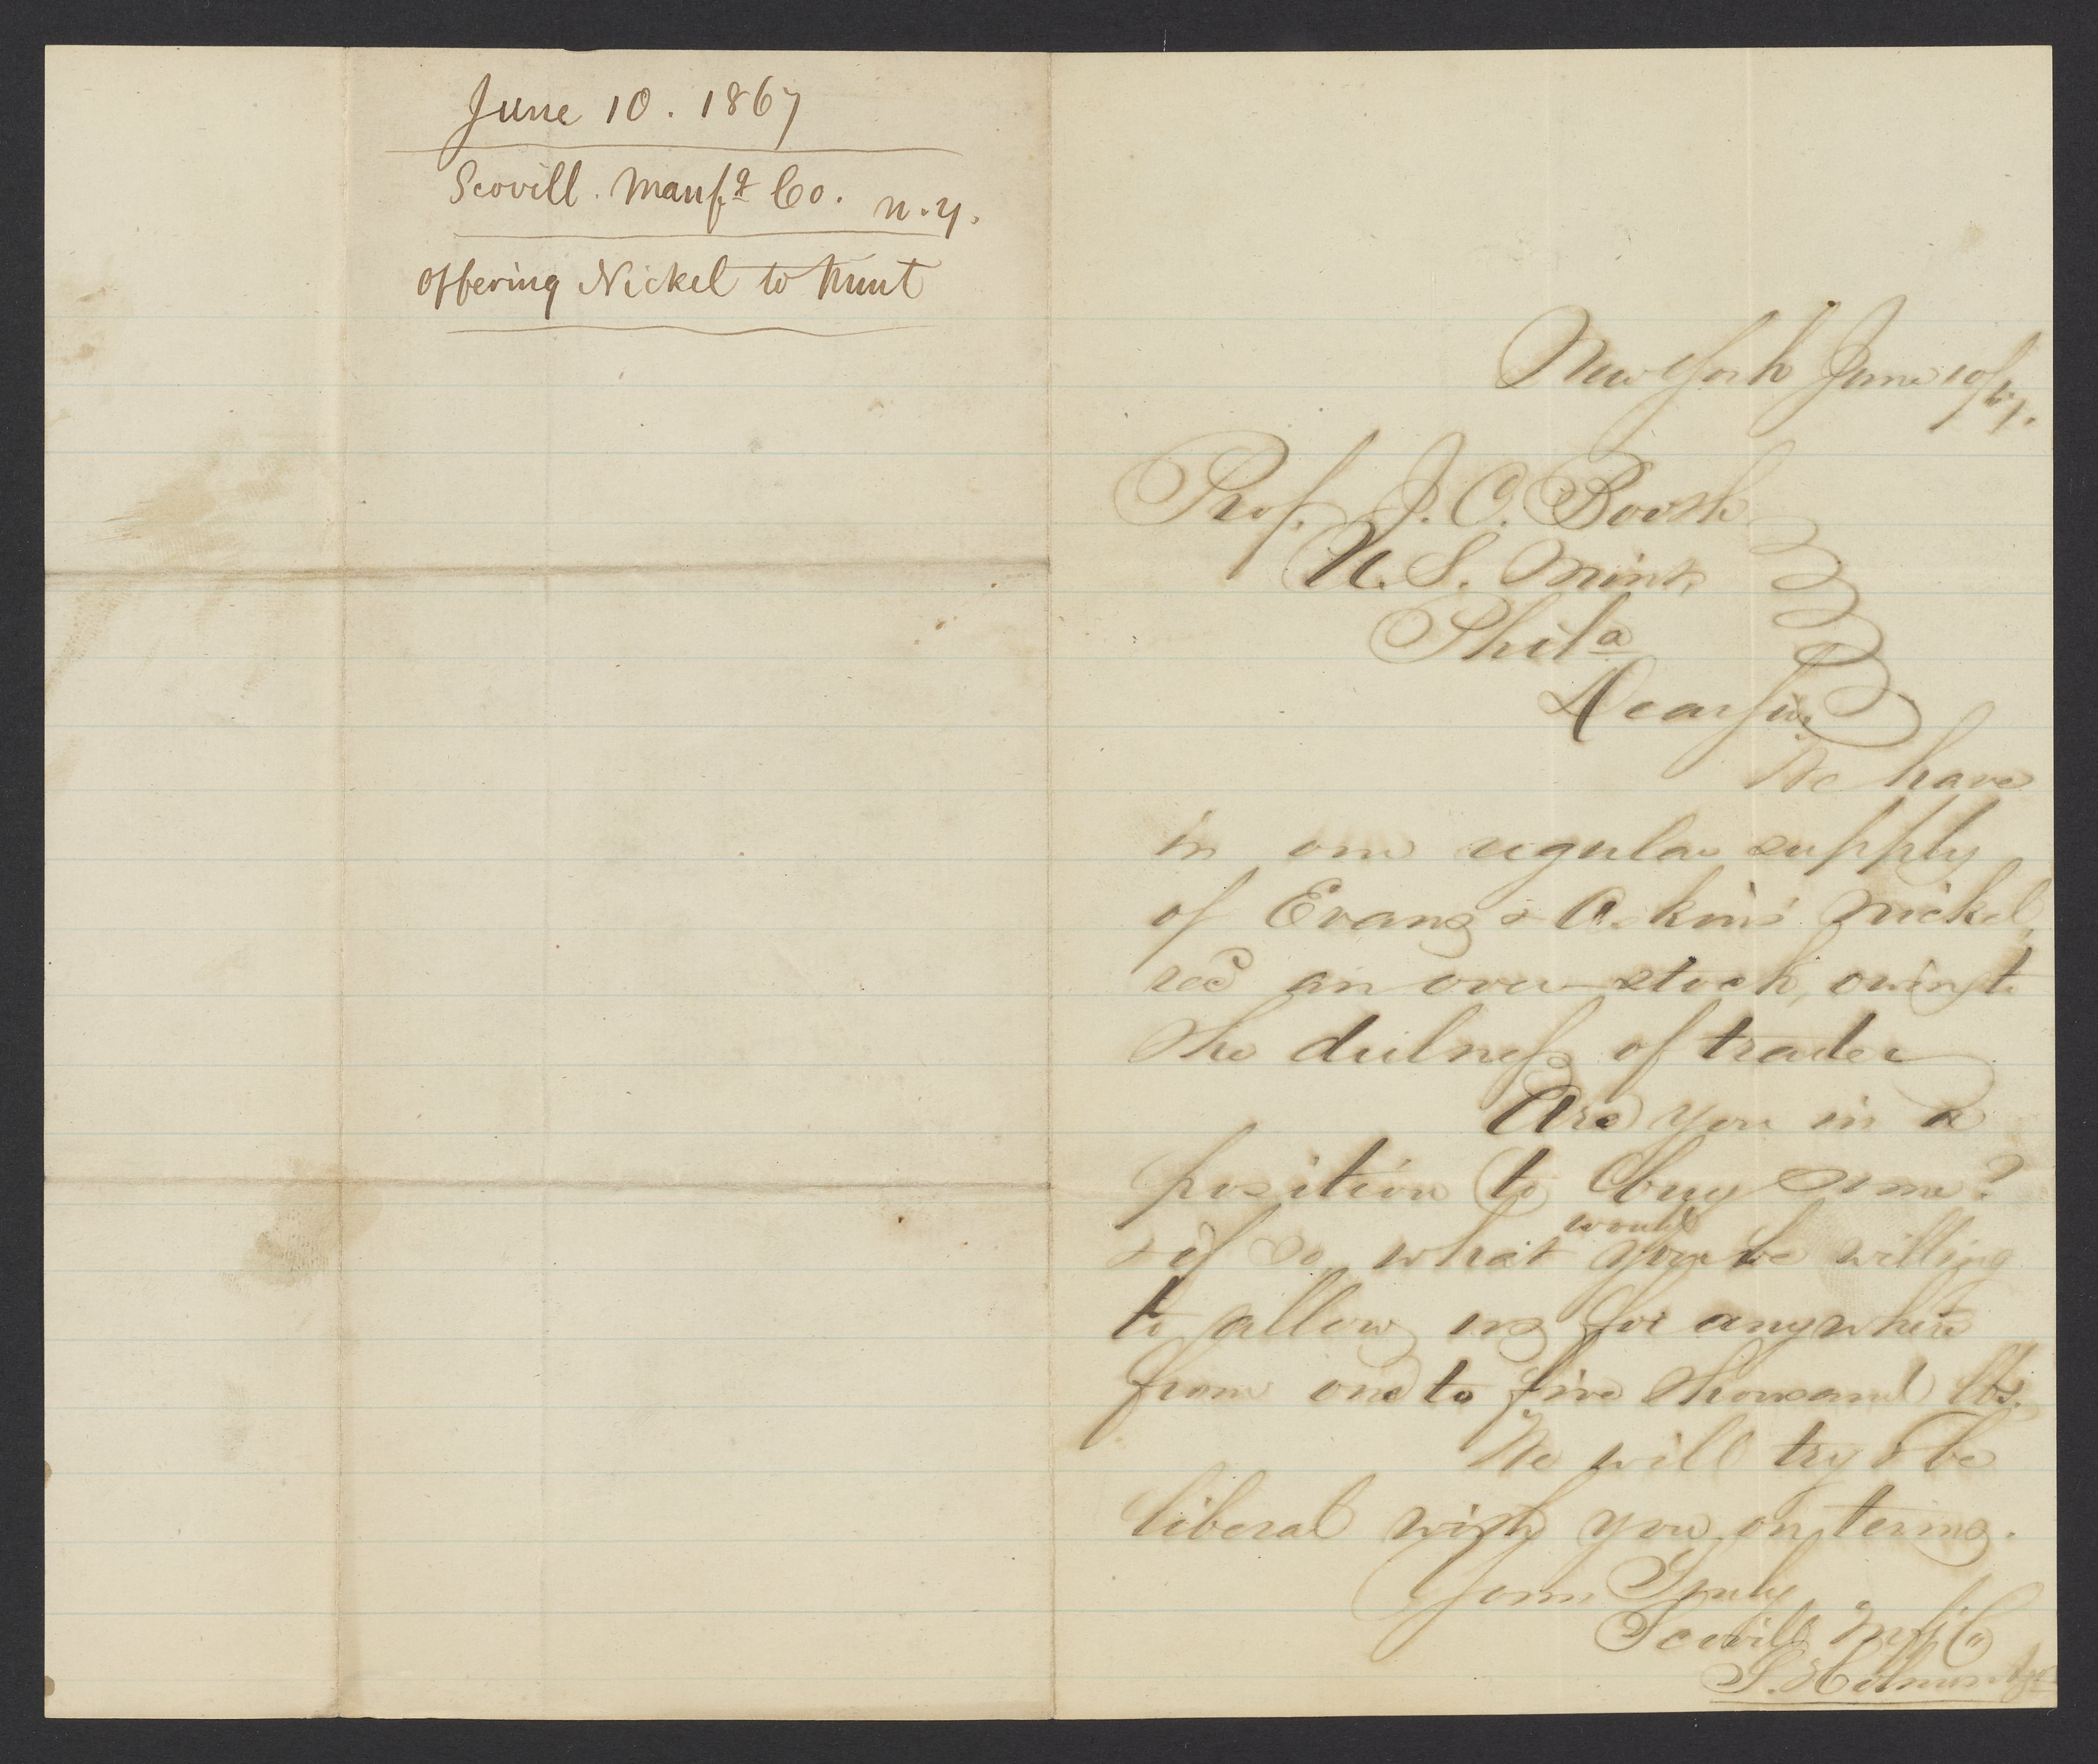 June 10. 1867
Scovill. Manfg Co. N.Y.
Offering Nickel to Mint
New York June 10/67.
Prof. J. C. Booth
U. S. Mint,
Phila
Dear Sir,
We have
in our regular supply
of Evans & Askins' Nickel,
recd an over-stock, owing to
the dulness of trade
Are you in a
position to buy some?
& if so, what would you be willing
to allow us for anywhere
from one to five thousand lbs.
We will try & be
liberal with you on terms.
Yours Truly
Scovill Mfg Co
S. Holmes